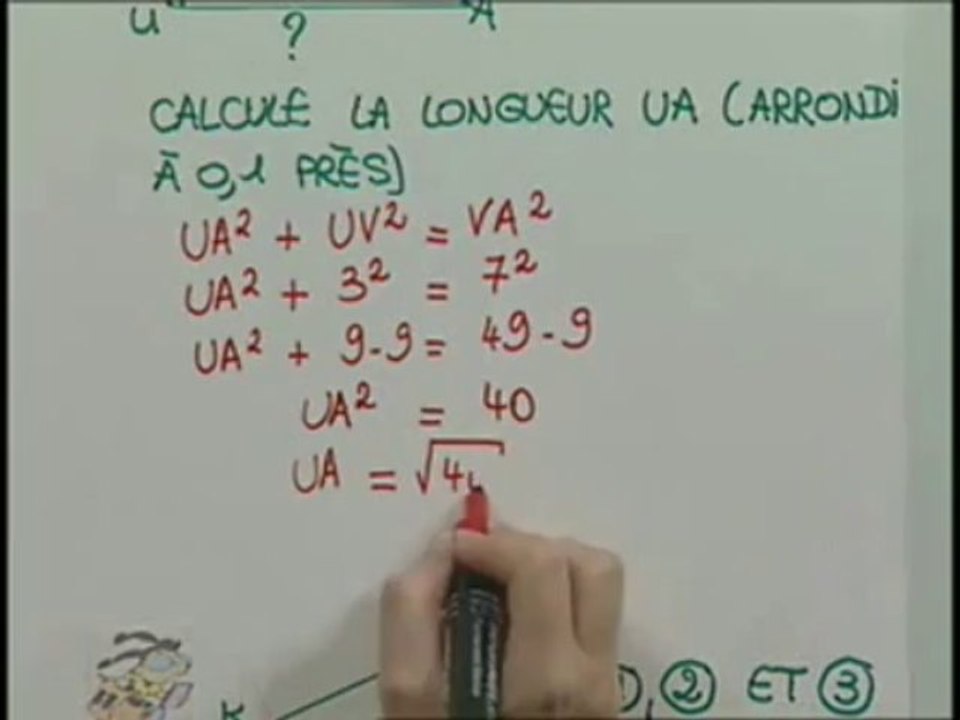 U A
?
CALCULE LA LONGUEUR UA (ARRONDI
À 0,1 PRÈS)
UA² + UV² = VA²
UA² + 3² = 7²
UA² + 9 - 9 = 49 - 9
UA² = 40
UA = √4
K , ② ET ③